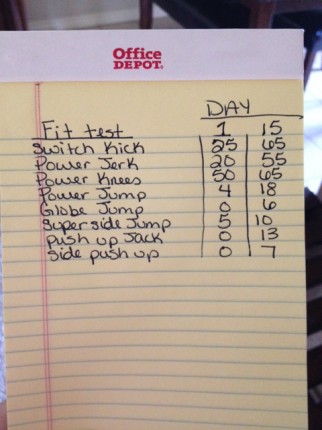 Office
DEPOT.
DAY
Fit test 1 15
Switch Kick 25 65
Power Jerk 20 55
Power Knees 50 65
Power Jump 4 18
Globe Jump 0 6
Super side Jump 5 10
push up Jack 0 13
side push up 0 7